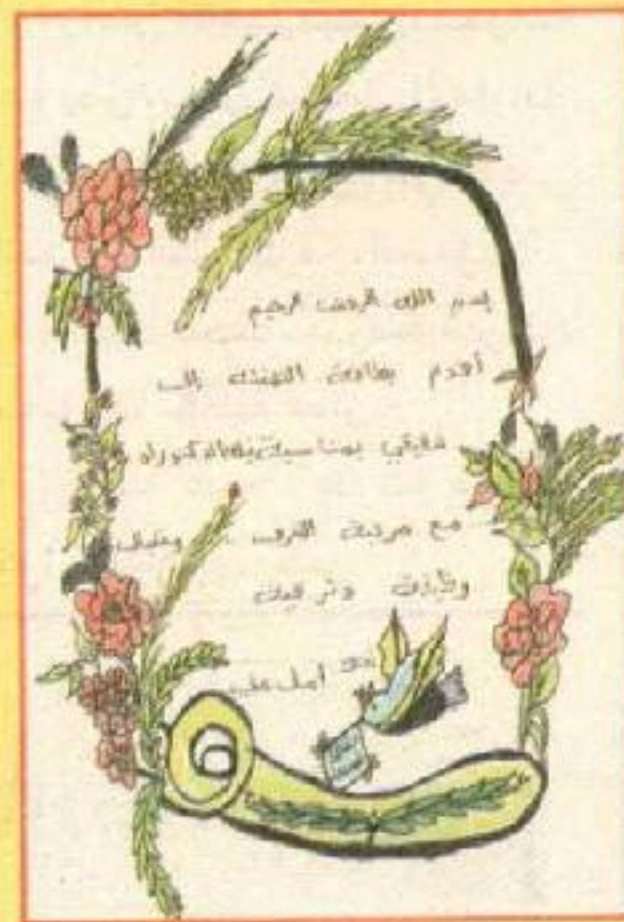 بسم الله الرحمن الرحيم
أقدم بطاقة التهنئة إلى
شقيقي بمناسبة نيله الدكتوراه
مع مرتبة الشرف
وظيفة وترقية
أمل علي